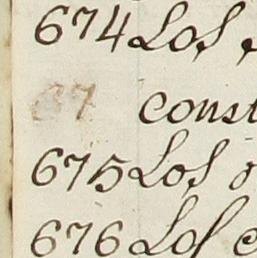 674 Los
const
675 Los
676 Los